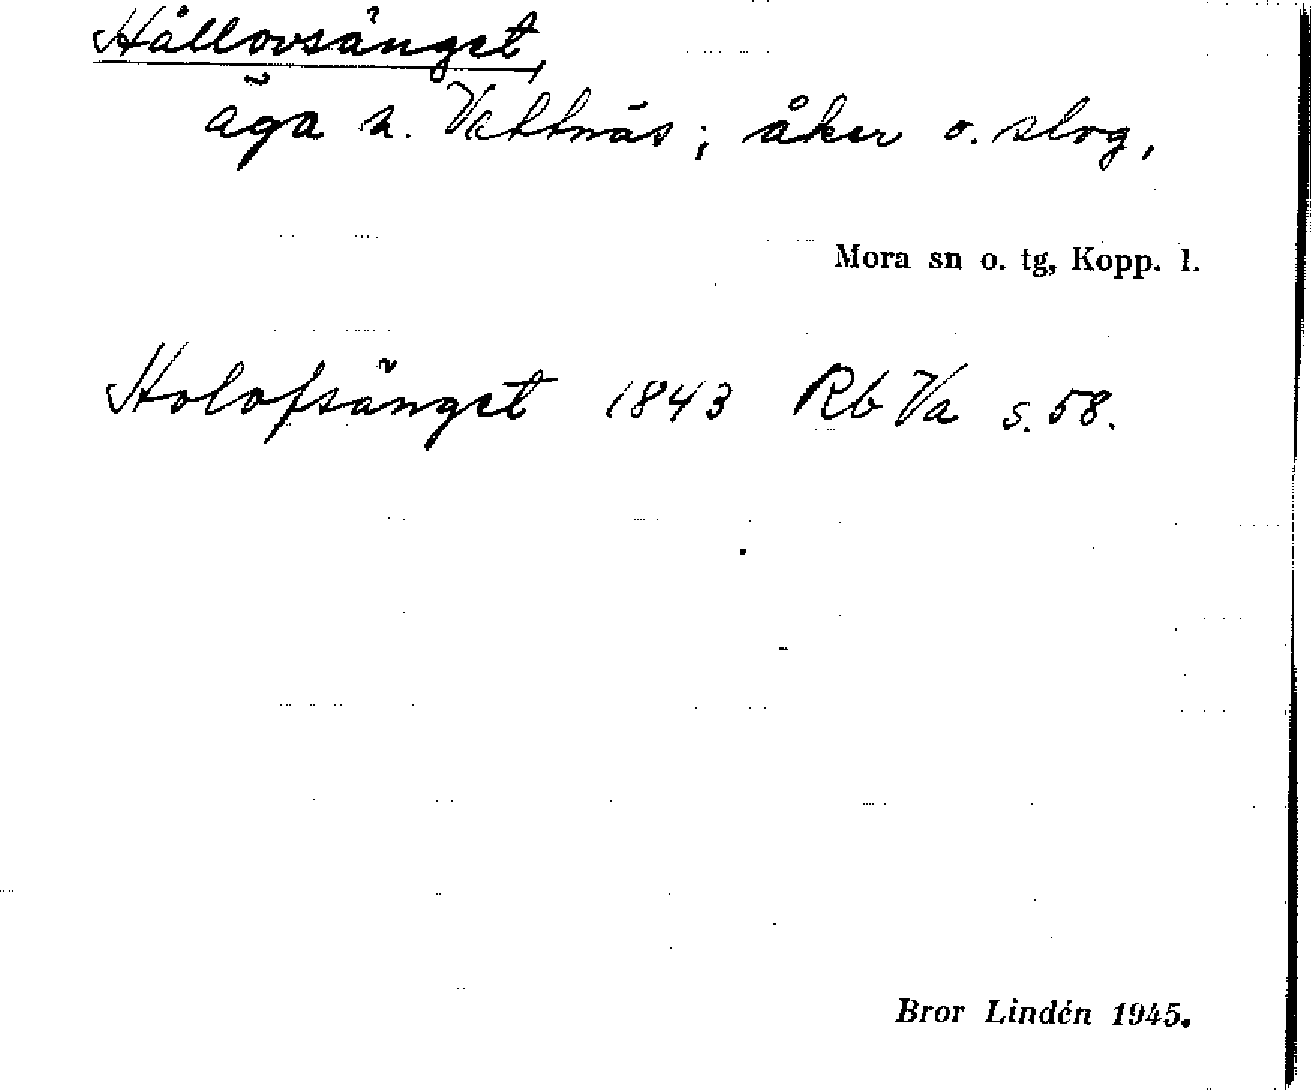 Hållovsänget,
äga n. Vattnäs; åker o. slog,
Mora sn o. tg, Kopp. l.
Holofsänget 1843 Rb Va s. 58.
Bror Lindén 1945.